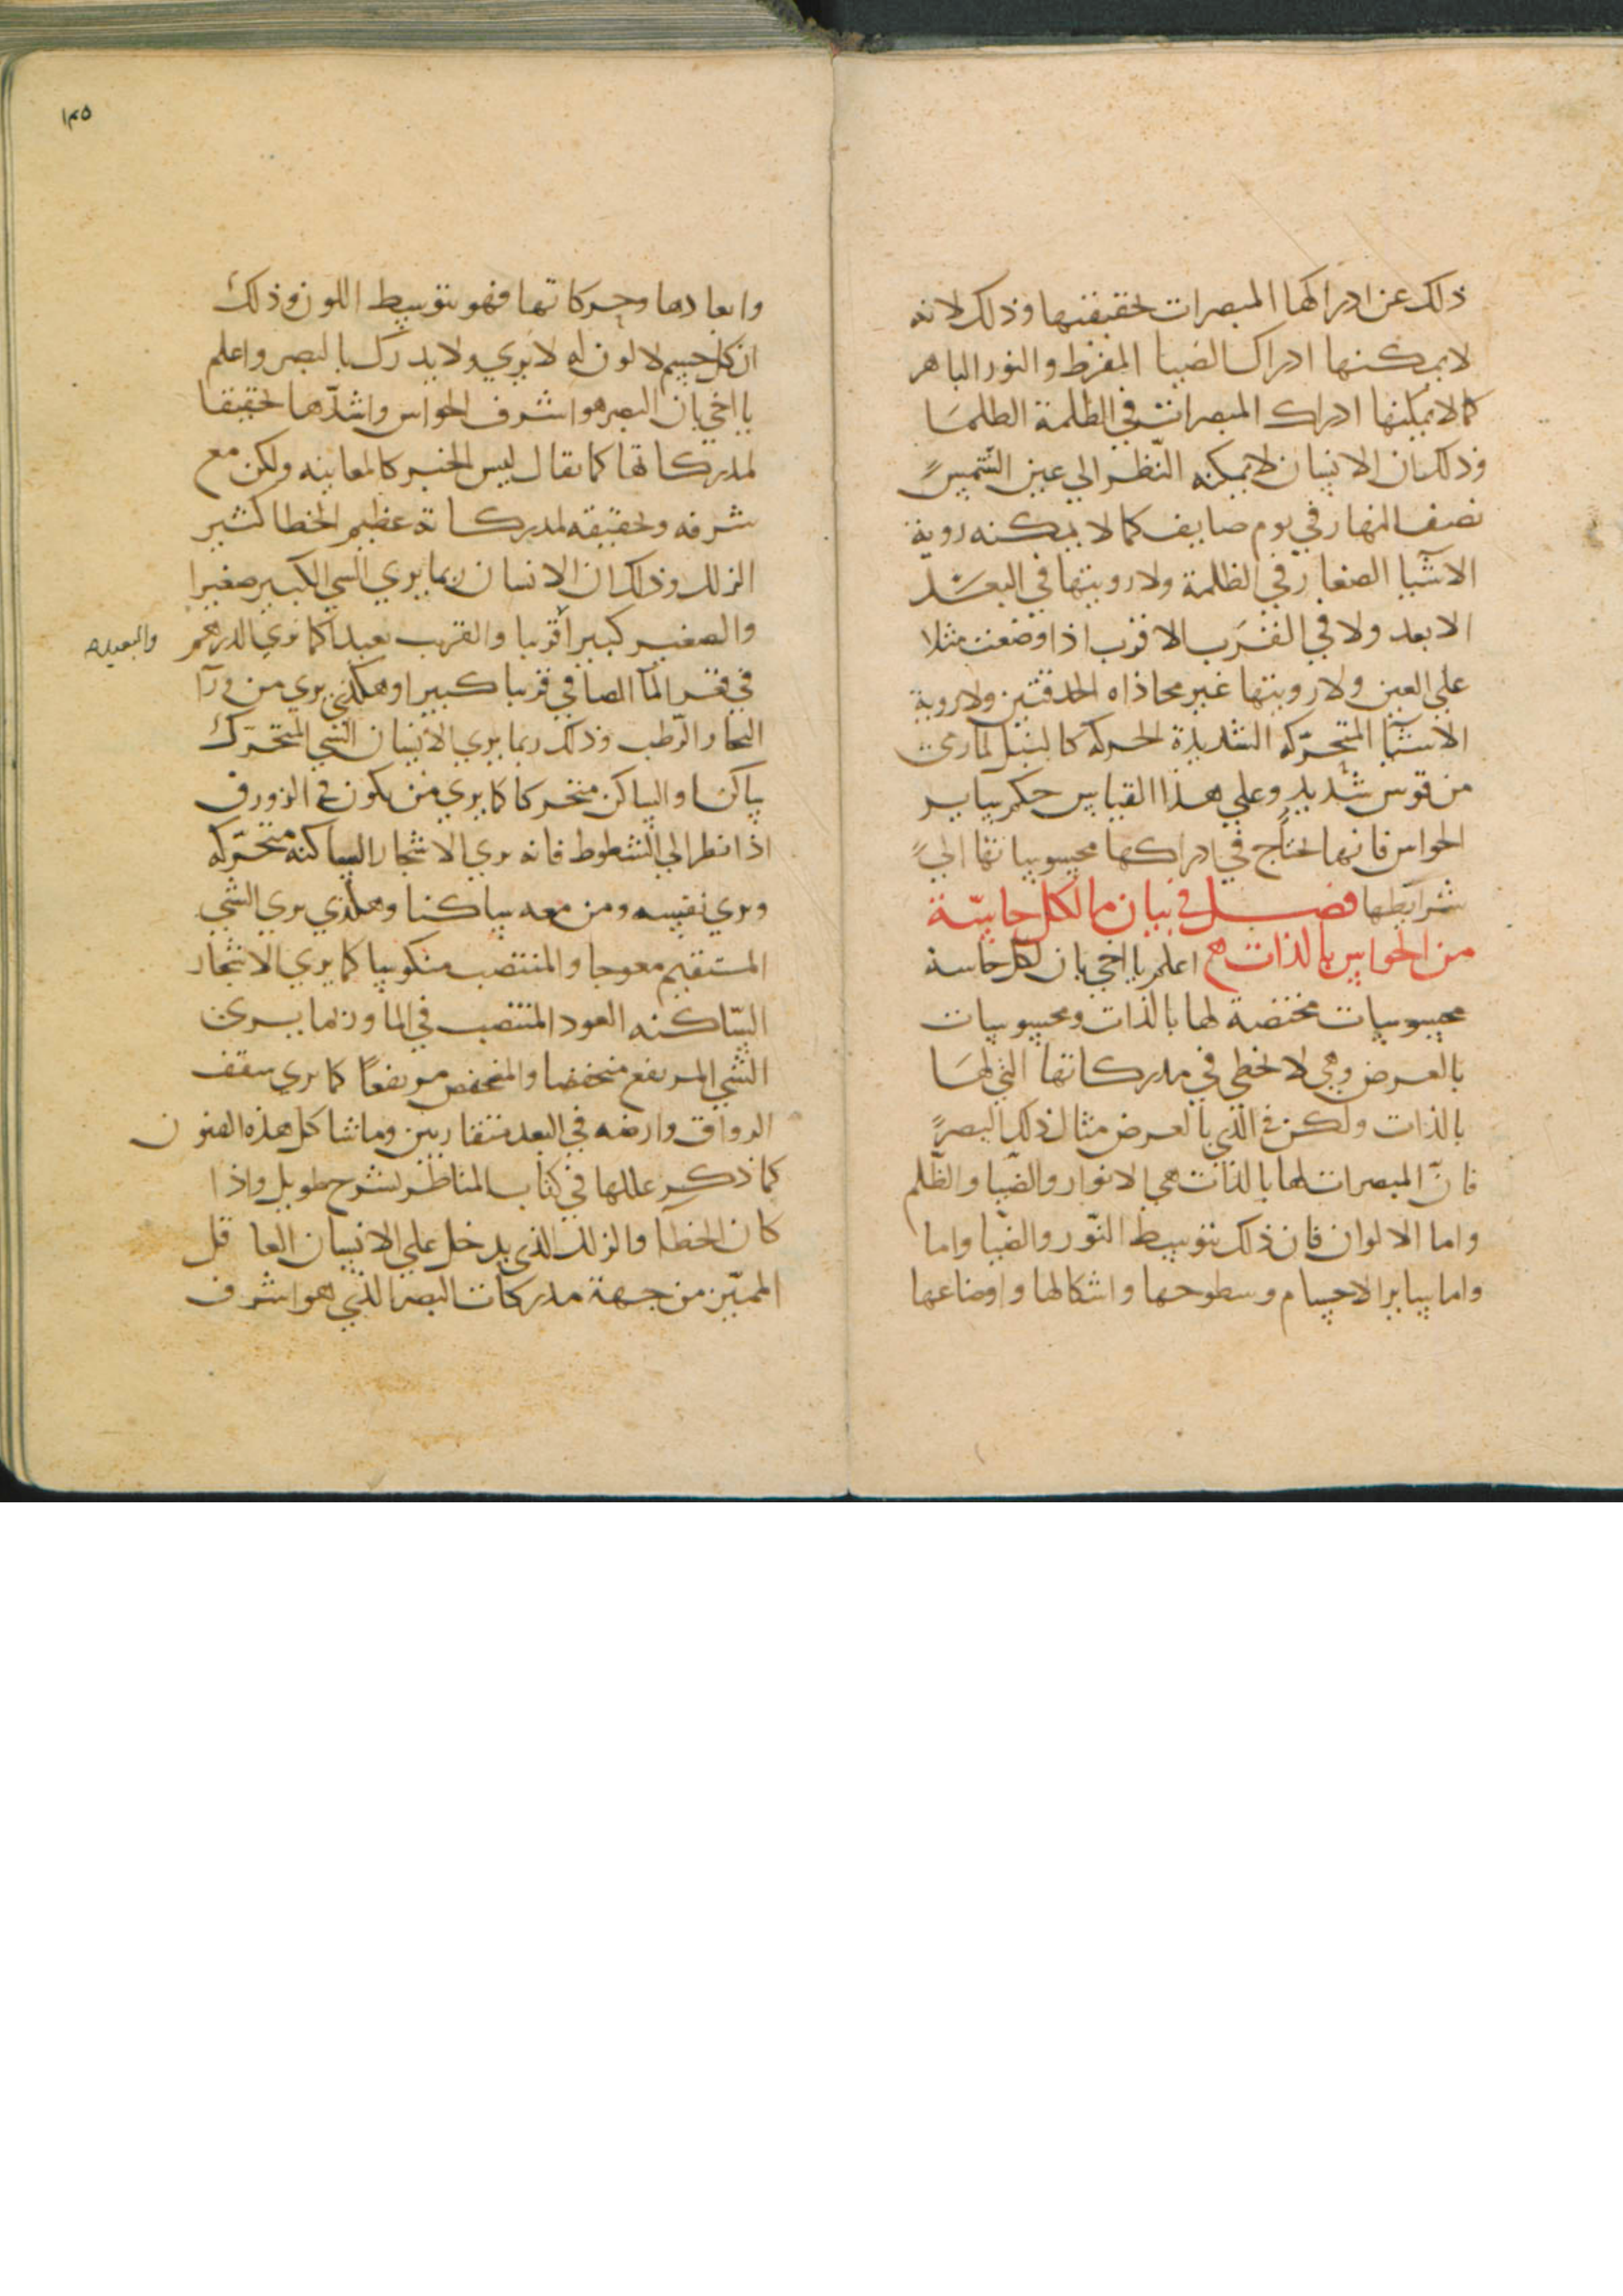 ذلك عن ادراكها المبصرات بحقيقتها وذلك لانه
لا يمكنها ادراك الضيا المفرط والنور الباهر
كما لا يمكنها ادراك المبصرات في الظلمة الظلما
وذلك ان الانسان لا يمكنه النظر الي عين الشمس
نصف النهار في يوم صايف كما لا يمكنه روية
الاشيا الصغار في الظلمة ولا رويتها في البعد
الابعد ولا في القرب الاقرب اذا وضعت مثلا
علي العين ولا رويتها غير محاذاه الحدقتين ولا روية
الاشيا المتحركه الشديدة الحركه كالنبل المارة
من قوس شديد وعلي هذا القياس حكم ساير
الحواس فانها تحتاج في ادراكها محسوساتها الي
شرايطها فصل في بيان ما لكل حاسة
من الحواس بالذات اعلم يا اخي بان لكل حاسة
محسوسات مختصة لها بالذات ومحسوسات
بالعرض وهي لا تخطي في مدركاتها التي لها
بالذات ولكن في الذي بالعرض مثال ذلك البصر
فان المبصرات لها بالذات هي الانوار والضيا والظلم
واما الالوان فان ذلك بتوسط النور والضيا واما
واما ساير الاجسام وسطوحها واشكالها واوضاعها
١٣٥
وابعادها وحركاتها فهو بتوسط اللون وذلك
ان كل جسم لا لون له لا يري ولا يدرك بالبصر واعلم
يا اخي بان البصر هو اشرف الحواس واشدها تحقيقا
لمدركاتها كما يقال ليس الخبر كالمعاينه ولكن مع
شرفه وتحقيقه لمدركاته عظيم الخطا كثير
الزلل وذلك ان الانسان ربما يري الشي الكبير صغيرا
والصغير كبيرا قريبا والقريب بعيدا كما نري الدرهم
والبعيد
في قعر الما الصافي قريبا كبيرا وهكذي يري من ورا
البخار الرطب وذلك ربما يري الانسان الشي المتحرك
ساكنا والساكن متحركا كما يري من يكون في الزورق
اذا نظر الي الشطوط فانه يري الاشجار الساكنه متحركه
ويري نفسه ومن معه ساكنا وهكذي يري الشي
المستقيم معوجا والمنتصب منكوسا كما يري الاشجار
الساكنه العود المنتصب في الما وربما يري
الشي المرتفع منخفضا والمنخفض مرتفعا كما يري سقف
الرواق وارضه في البعد متقاربين وما شاكل هذه الفنون
كما ذكر عللها في كتاب المناظر بشرح طويل واذا
كان الخطا والزلل الذي يدخل علي الانسان العاقل
المميز من جهة مدركات البصر الذي هو اشرف